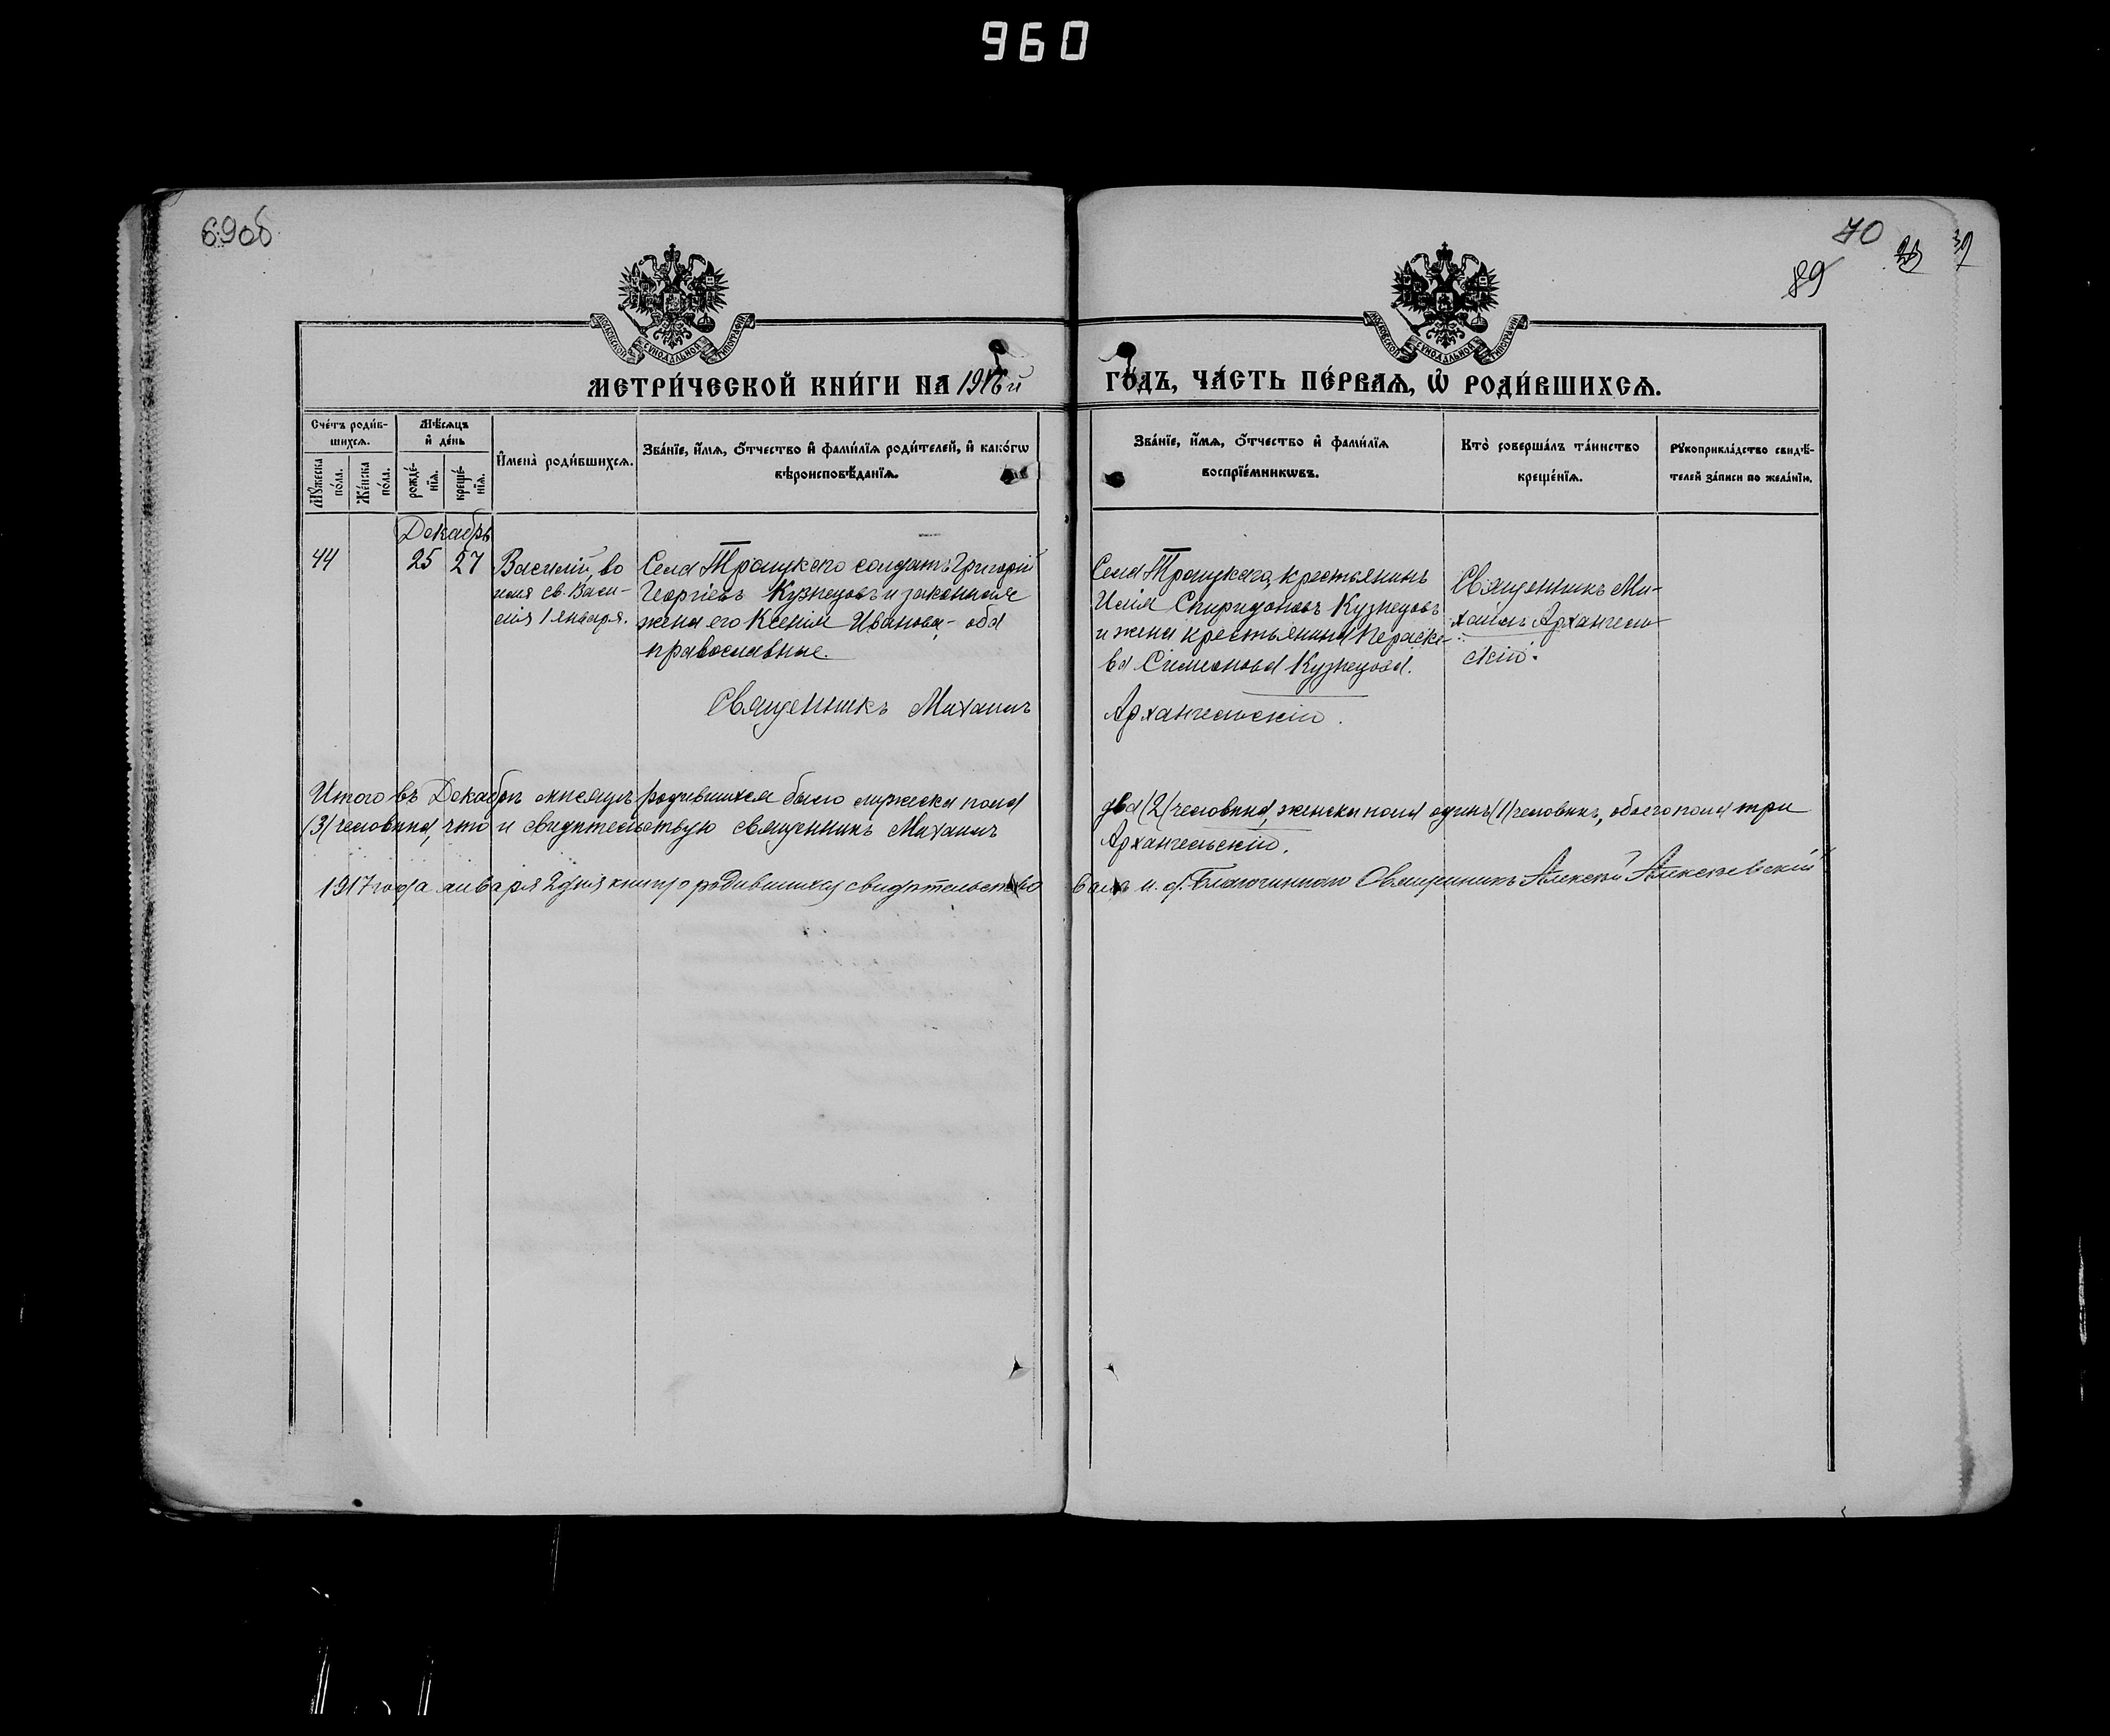 960
69об
70
89
МОСКОВСКОЙ СѴНОДАЛЬНОЙ ТИПОГРАФІИ
МОСКОВСКОЙ СѴНОДАЛЬНОЙ ТИПОГРАФІИ
МЕТРИ́ЧЕСКОЙ КНИ́ГИ НА 1916й ГО́ДЪ, ЧА́СТЬ ПЕ́РВАѦ, Ѡ҆ РОДИ́ВШИХСѦ.
Сче́тъ роди́в-
шихсѧ.
Мꙋ́жеска по́ла.
Же́нска по́ла.
Мѣ́сѧцъ и҆ де́нь
рожде́нїѧ.
креще́нїѧ.
И҆мена̀ роди́вшихсѧ.
Зва́нїе, и҆́мѧ, ѻ҆́тчество и҆ фами́лїѧ роди́телей, и҆ како́гѡ
вѣроисповѣ́данїѧ.
Зва́нїе, и҆́мѧ, ѻ҆́тчество и҆ фами́лїѧ
воспрїе́мникѡвъ.
Кто̀ соверша́лъ та́инство
креще́нїѧ.
Рꙋкоприкла́дство свидѣ́-
телей за́писи по жела́нїю.
Декабрь
44 25 27
Василій, во
имя св. Васи-
лія 1 января.
Села Троицкаго солдатъ Григорій
Георгіевъ Кузнецовъ и законная
жена его Ксенія Иванова, - оба
православные.
Села Троицкаго, крестьянинъ
Илія Спиридоновъ Кузнецовъ
и жена крестьянина Параске-
ва Симеонова Кузнецова.
Священникъ Ми-
хаилъ Архангель-
скій.
Священникъ Михаилъ Архангельскій.
Итого въ Декабрѣ мѣсяцѣ родившихся было мужеска пола два (2) человѣка, женска пола одинъ (1) человѣкъ, обоего пола три
(3) человѣка, что и свидѣтельствую священникъ Михаилъ Архангельскій.
1917 года января 2 дня книгу о родившихся свидѣтельствовалъ и. д. Благочиннаго Священникъ Алексѣй Алексѣевскій